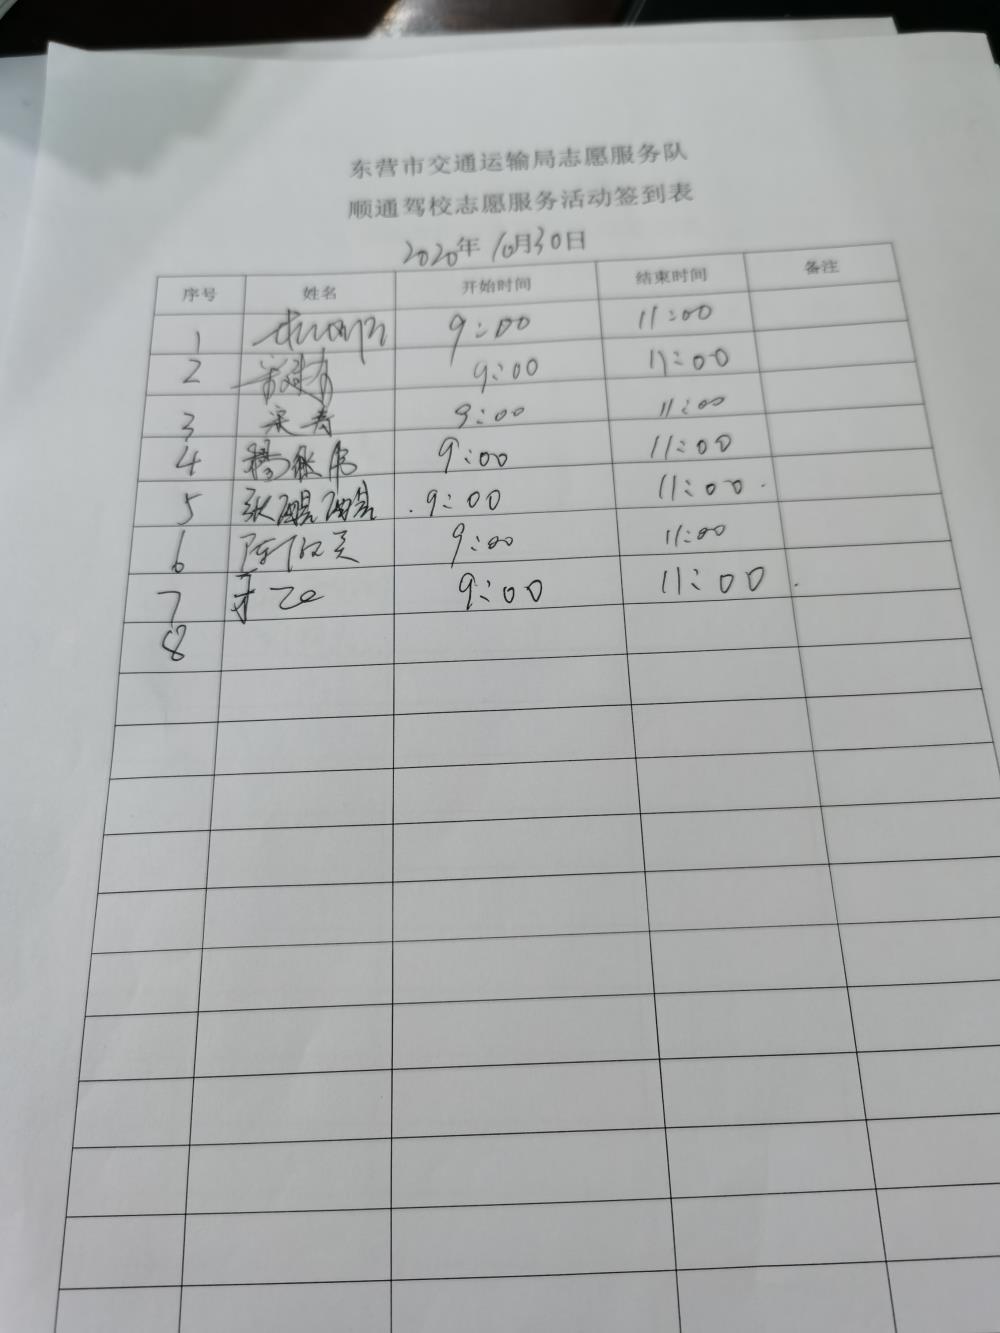 东营市交通运输局志愿服务队
顺通驾校志愿服务活动签到表
2020年10月30日
序号 姓名 开始时间 结束时间 备注
1 9:00 11:00
2 9:00 11:00
3 9:00 11:00
4 9:00 11:00
5 9:00 11:00
6 9:00 11:00
7 9:00 11:00
8